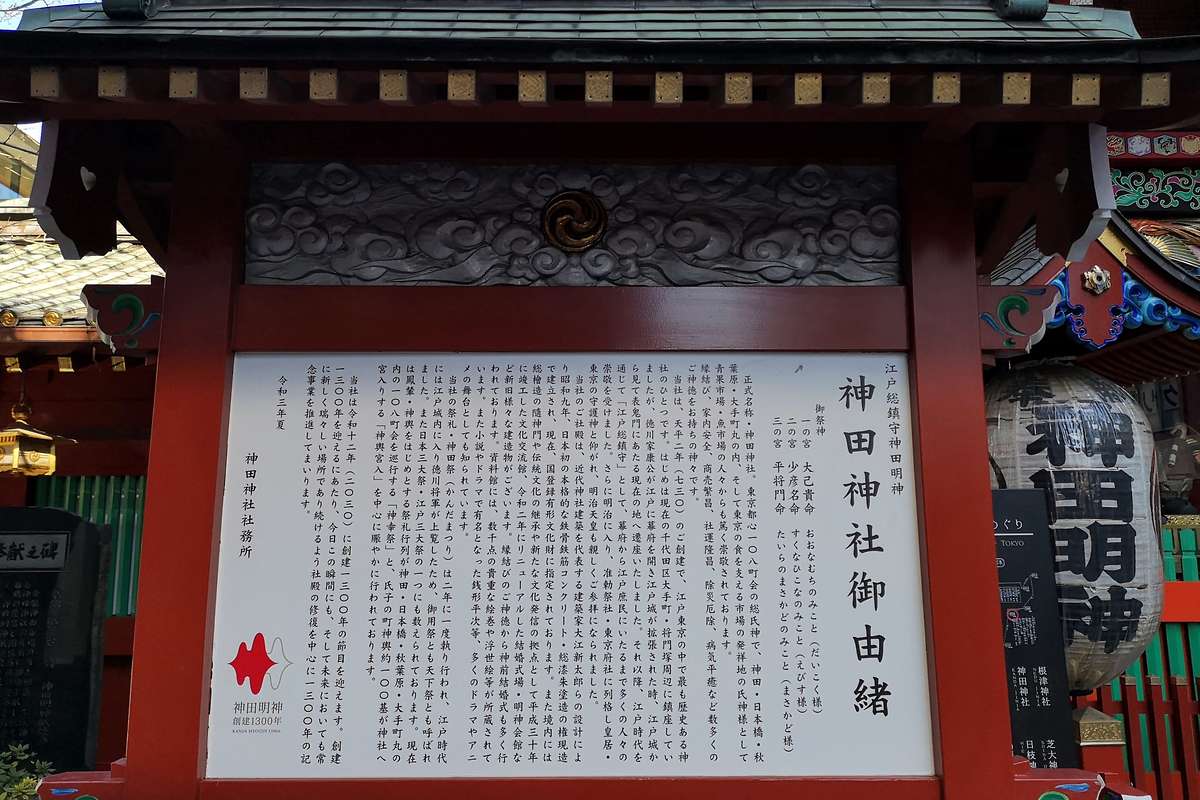 江戸総鎮守神田明神
神田神社御由緒
御祭神
一の宮 大己貴命 おおなむちのみこと(だいこく様)
二の宮 少彦名命 すくなひこなのみこと(えびす様)
三の宮 平将門命 たいらのまさかどのみこと(まさかど様)
正式名称・神田神社。東京都心一〇八町会の総氏神で、神田・日本橋・秋
葉原・大手町丸の内、そして東京の食を支える市場の発祥地の氏神様として
青果市場・魚市場の人々からも篤く崇敬されております。
縁結び、家内安全、商売繁昌、社運隆昌、除災厄除、病気平癒など数多くの
ご神徳をお持ちの神々です。
当社は、天平二年(七三〇)のご創建で、江戸東京の中で最も歴史ある神
社のひとつです。はじめは現在の千代田区大手町・将門塚周辺に鎮座してい
ましたが、徳川家康公が江戸に幕府を開き江戸城が拡張された時、江戸城か
ら見て表鬼門にあたる現在の地へ遷座いたしました。それ以降、江戸時代を
通じて「江戸総鎮守」として、幕府から江戸庶民にいたるまで多くの人々の
崇敬を受けました。さらに明治に入り、准勅祭社・東京府社に列格し皇居・
東京の守護神と仰がれ、明治天皇も親しくご参拝になられました。
当社のご社殿は、近代神社建築を代表する建築家大江新太郎らの設計によ
り昭和九年、日本初の本格的な鉄骨鉄筋コンクリート・総漆朱塗造の権現造
で建立され、現在、国登録有形文化財に指定されております。また境内には
総檜造の隨神門や伝統文化の継承や新たな文化発信の拠点として平成三十年
に竣工した文化交流館、令和二年にリニューアルした結婚式場・明神会館な
ど新旧様々な建造物がございます。縁結びのご神徳から神前結婚式も多く行
われております。資料館には、数千点の貴重な絵巻や浮世絵等が所蔵されて
います。また小説やドラマで有名となった銭形平次等、多くのドラマやアニ
メの舞台としても知られています。
当社の祭礼・神田祭(かんだまつり)は二年に一度執り行われ、江戸時代
には江戸城内に入り徳川将軍が上覧したため、御用祭とも天下祭とも呼ばれ
ました。また日本三大祭・江戸三大祭の一つにも数えられております。現在
は鳳輦・神輿をはじめとする祭礼行列が神田・日本橋・秋葉原・大手町丸の
内の一〇八町会を巡行する「神幸祭」と、氏子の町神輿約一〇〇基が神社へ
宮入りする「神輿宮入」を中心に賑やかに行われております。
当社は令和十二年(二〇三〇)に創建一三〇〇年の節目を迎えます。創建
一三〇〇年を迎えるにあたり、今日この瞬間にも、そして未来においても常
に新しく瑞々しい場所であり続けるよう社殿の修復を中心に一三〇〇年の記
念事業を推進してまいります。
令和三年夏
神田神社社務所
神田明神
創建1300年
神田明神
めぐり
TOKYO
根津神社
神田神社
芝大神
日枝神
献之碑